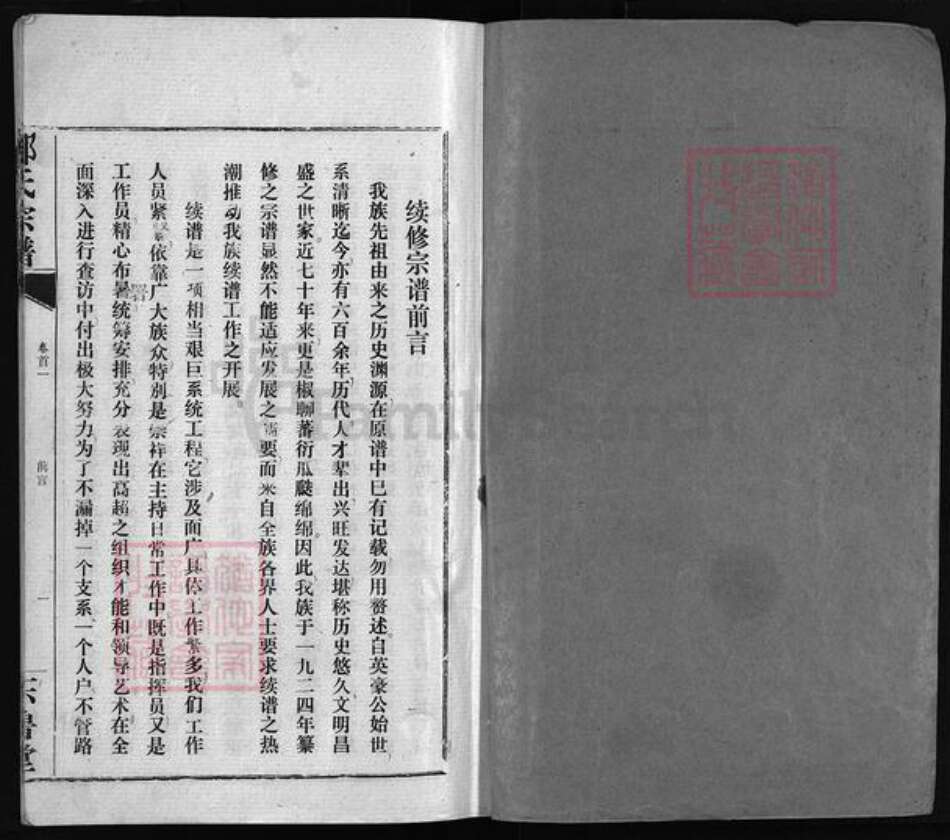 续修宗谱前言
我族先祖由来之历史渊源在原谱中已有记载勿用赘述自英豪公始世
系清晰迄今亦有六百余年历代人才辈出兴旺发达堪称历史悠久文明昌
盛之世家近七十年来更是椒聊蕃衍瓜瓞绵绵。因此我族于一九二四年纂
修之宗谱显然不能适应发展之需要而来自全族各界人士要求续谱之热
潮推动我族续谱工作之开展。
续谱是一项相当艰巨系统工程它涉及面广具体工作繁多我们工作
人员紧紧依靠广大族众特别是崇祥在主持日常工作中既是指挥员又是
工作员精心布暑统筹安排充分表现出高超之组织才能和领导艺术在全
面深入进行查访中付出极大努力为了不漏掉一个支系一个人户不管路
氏宗谱
卷首一
前言
一
FamilySearch